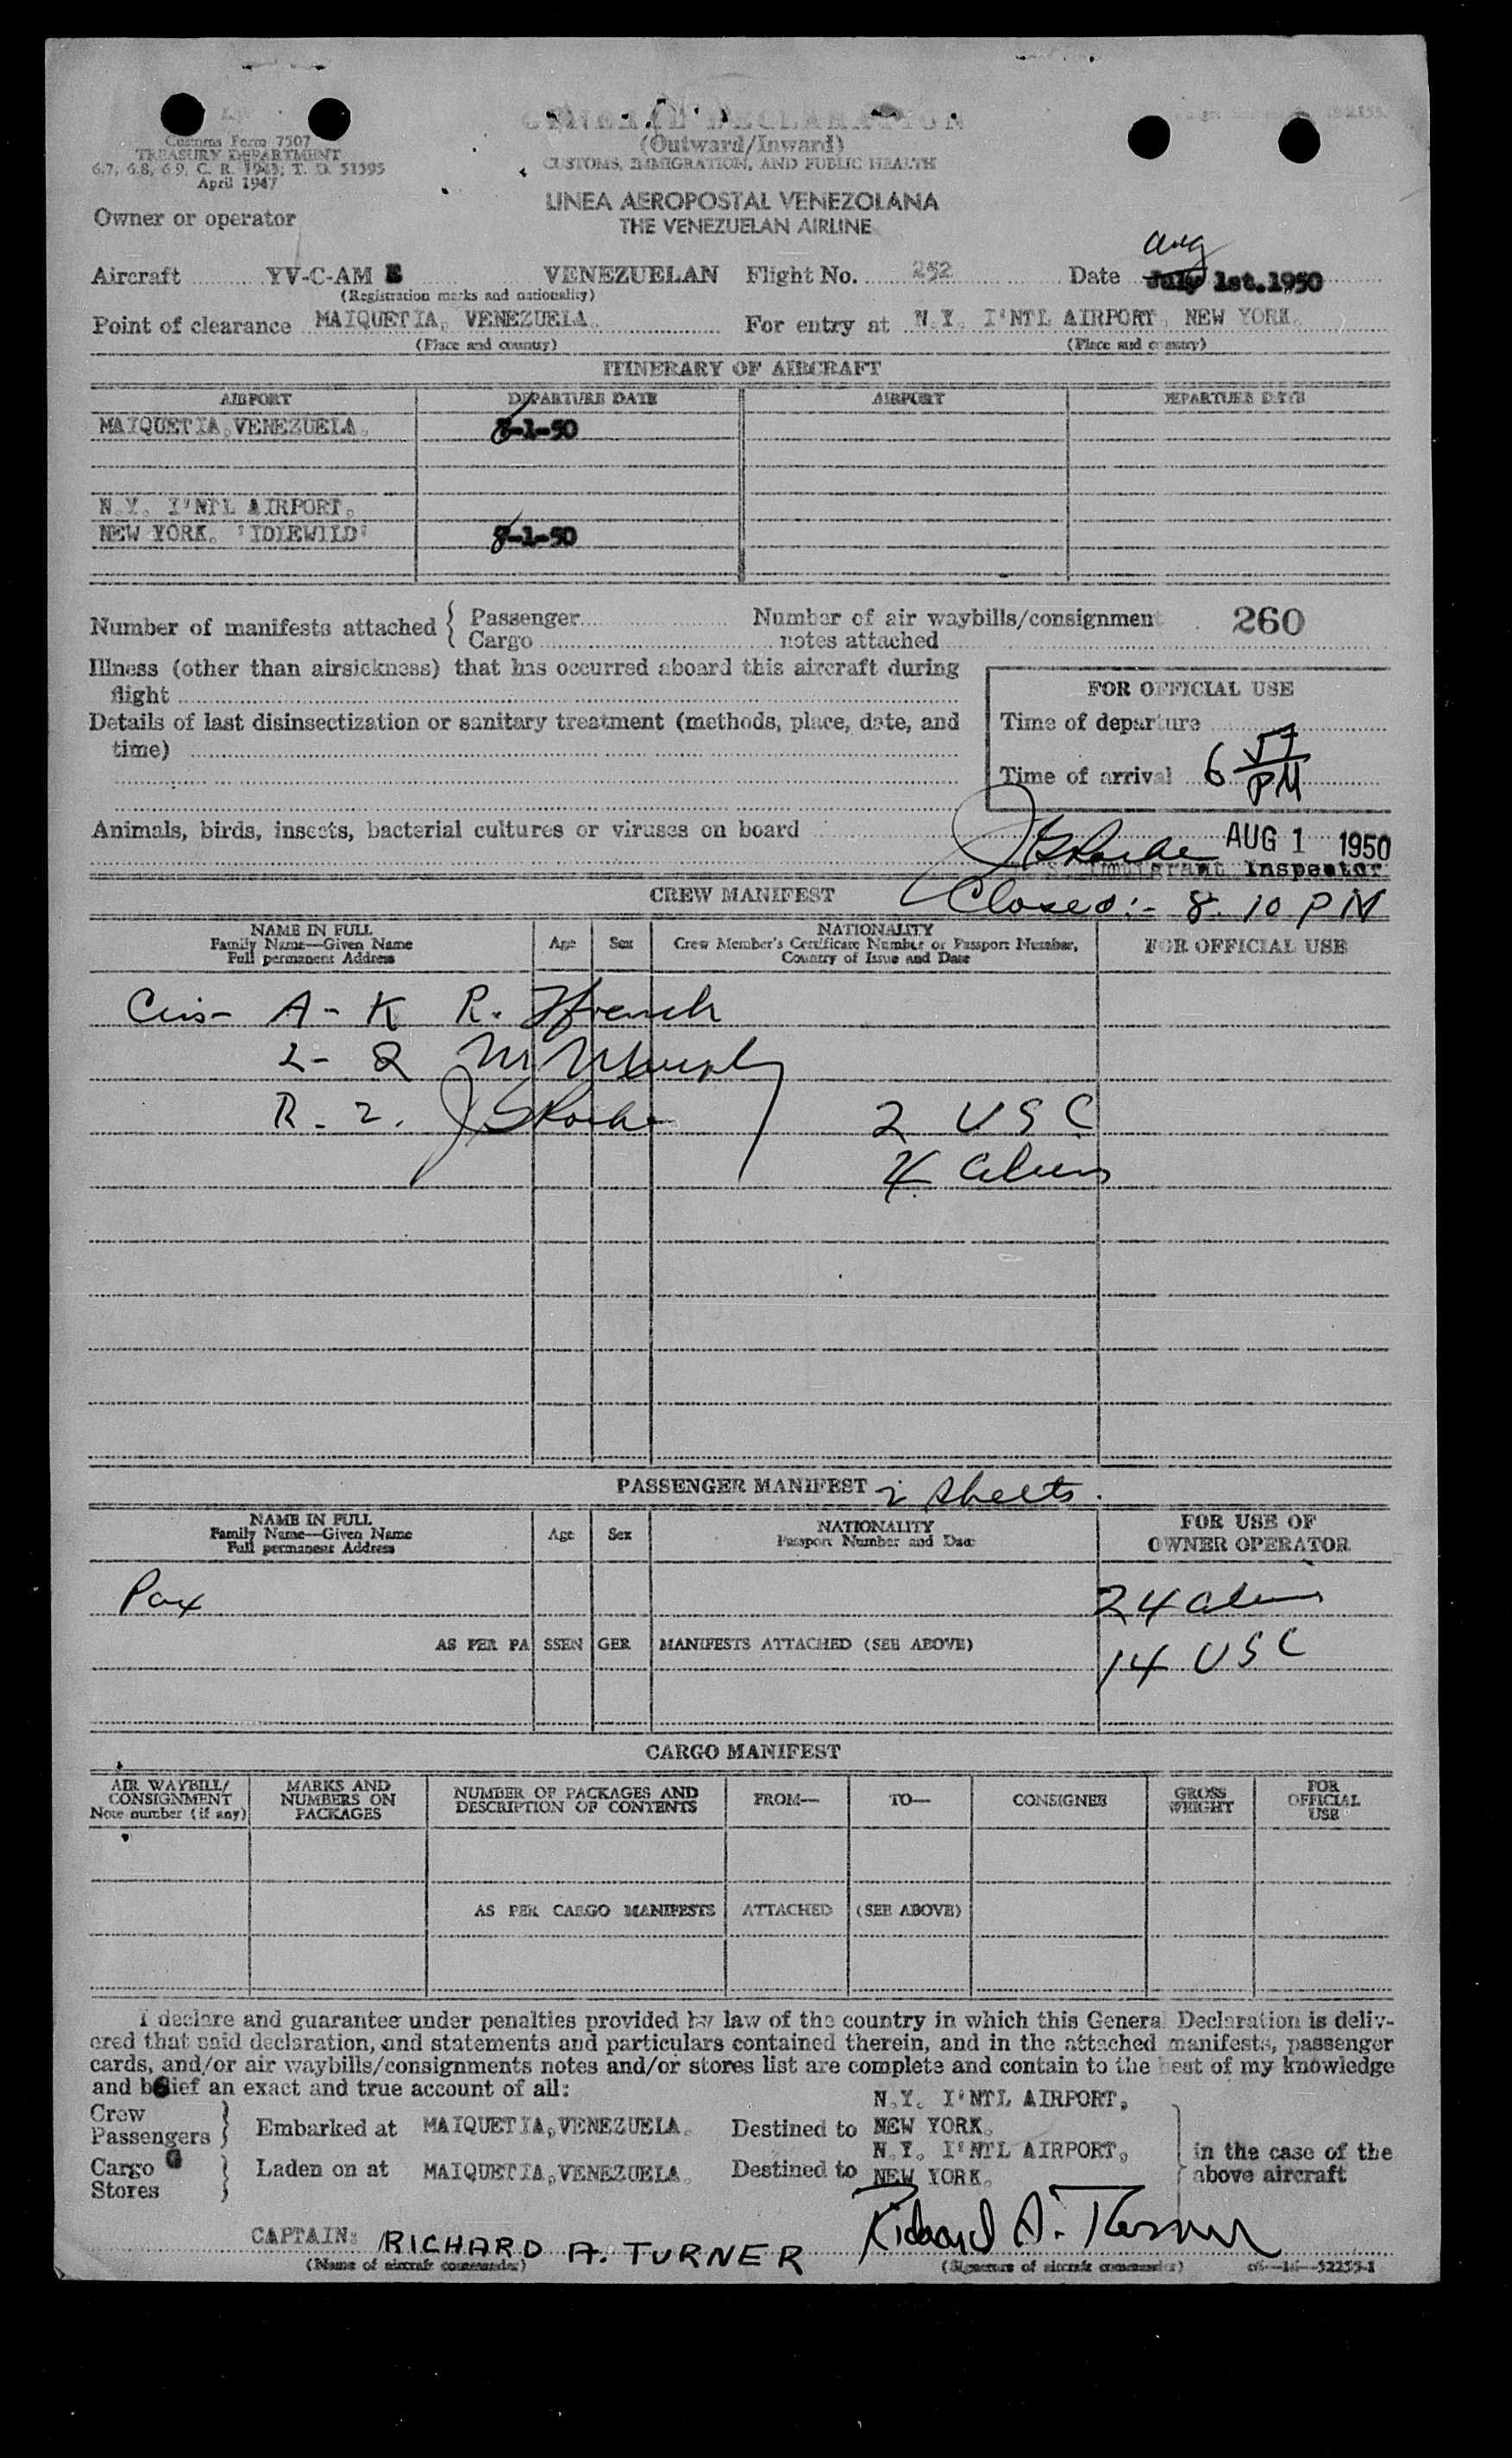 GENERAL DECLARATION
(Outward/Inward)
CUSTOMS, IMMIGRATION, AND PUBLIC HEALTH
Customs Form 7507
TREASURY DEPARTMENT
6.7, 6.8, 6.9, C. R. 1943; T. D. 51595
April 1947
LINEA AEROPOSTAL VENEZOLANA
THE VENEZUELAN AIRLINE
Owner or operator
Aircraft YV-C-AM VENEZUELAN Flight No. 252 Date July Aug 1st.1950
(Registration marks and nationality)
Point of clearance MAIQUETIA, VENEZUELA. For entry at N.Y. I'NTL AIRPORT, NEW YORK.
(Place and country) (Place and country)
ITINERARY OF AIRCRAFT
AIRPORT DEPARTURE DATE AIRPORT DEPARTURE DATE
MAIQUETIA,VENEZUELA. 8-1-50
N.Y. I'NTL AIRPORT,
NEW YORK. 'IDLEWILD' 8-1-50
Number of manifests attached { Passenger Number of air waybills/consignment 260
Cargo notes attached
Illness (other than airsickness) that has occurred aboard this aircraft during
flight
FOR OFFICIAL USE
Details of last disinsectization or sanitary treatment (methods, place, date, and
time)
Time of departure
Time of arrival 6 57 PM
Animals, birds, insects, bacterial cultures or viruses on board
AUG 1 1950
Immigrant Inspector
CREW MANIFEST Closed:- 8.10 PM
NAME IN FULL
Family Name—Given Name
Full permanent Address
Age Sex
NATIONALITY
Crew Member's Certificate Number or Passport Number,
Country of Issue and Date
FOR OFFICIAL USE
A-K R. Ffrench
L-Q M Murphy
R-Z. 2 USC
4 aliens
PASSENGER MANIFEST 2 sheets.
NAME IN FULL
Family Name—Given Name
Full permanent Address
Age Sex
NATIONALITY
Passport Number and Date
FOR USE OF
OWNER OPERATOR
Pax 24 aliens
AS PER PASSENGER MANIFESTS ATTACHED (SEE ABOVE) 14 USC
CARGO MANIFEST
AIR WAYBILL/
CONSIGNMENT
Note number (if any)
MARKS AND
NUMBERS ON
PACKAGES
NUMBER OF PACKAGES AND
DESCRIPTION OF CONTENTS
FROM— TO— CONSIGNEE
GROSS
WEIGHT
FOR
OFFICIAL
USE
AS PER CARGO MANIFESTS ATTACHED (SEE ABOVE)
I declare and guarantee under penalties provided by law of the country in which this General Declaration is deliv-
ered that said declaration, and statements and particulars contained therein, and in the attached manifests, passenger
cards, and/or air waybills/consignments notes and/or stores list are complete and contain to the best of my knowledge
and belief an exact and true account of all:
Crew
Passengers } Embarked at MAIQUETIA,VENEZUELA. Destined to N.Y. I'NTL AIRPORT, NEW YORK.
Cargo
Stores } Laden on at MAIQUETIA,VENEZUELA. Destined to N.Y. I'NTL AIRPORT, NEW YORK.
in the case of the
above aircraft
CAPTAIN: RICHARD A. TURNER Richard A. Turner
(Name of aircraft commander) (Signature of aircraft commander)